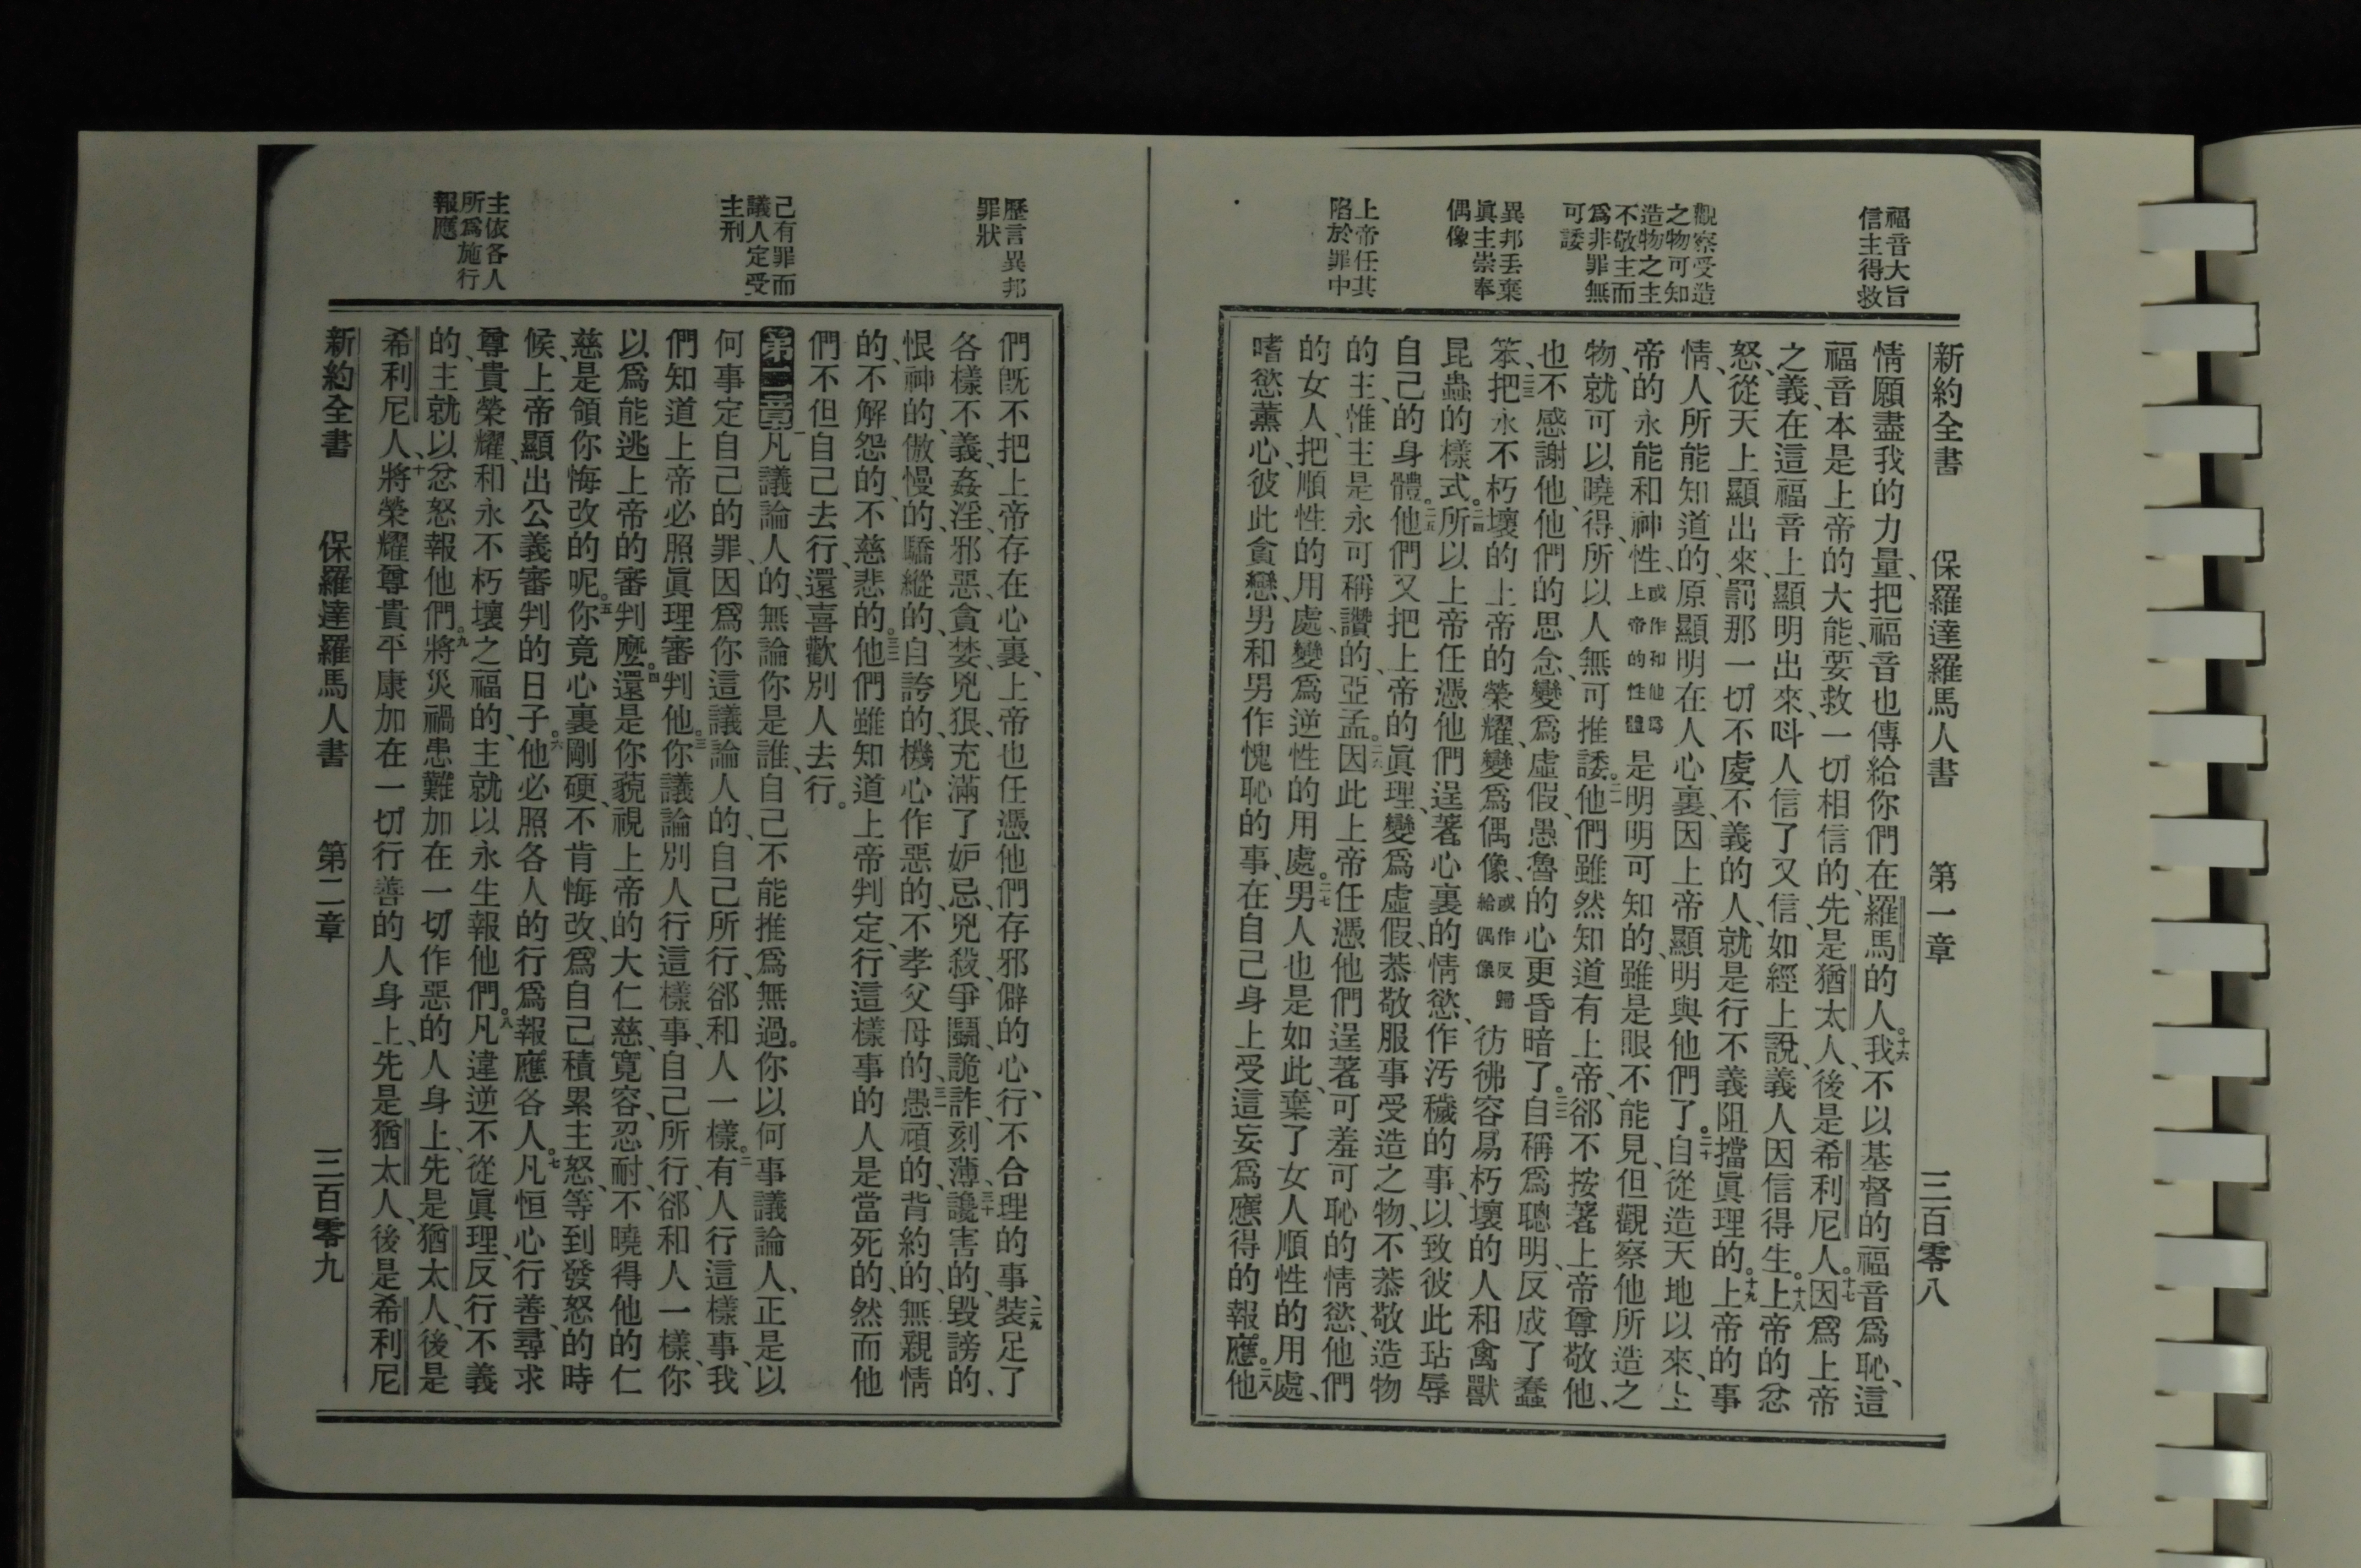 新約全書 保羅達羅馬人書 第一章 三百零八
福音大旨
信主得救
觀察受造
之物可知
造物之主
不敬主而
爲非罪無
可諉
異邦丟棄
眞主崇奉
偶像
上帝任其
陷於罪中
情願盡我的力量、把福音也傳給你們在羅馬的人。十六我不以基督的福音爲恥、這
福音本是上帝的大能、要救一切相信的、先是猶太人、後是希利尼人。十七因爲上帝
之義、在這福音上顯明出來、呌人信了又信、如經上說、義人因信得生。十八上帝的忿
怒、從天上顯出來、罰那一切不虔不義的人、就是行不義阻擋眞理的。十九上帝的事
情、人所能知道的、原顯明在人心裏、因上帝顯明與他們了。二十自從造天地以來、上
帝的永能和神性、或作和他爲上帝的性體是明明可知的、雖是眼不能見、但觀察他所造之
物、就可以曉得、所以人無可推諉。二一他們雖然知道有上帝、郤不按著上帝尊敬他、
也不感謝他、他們的思念、變爲虛假、愚魯的心更昏暗了。二二自稱爲聰明、反成了蠢
笨、二三把永不朽壞的上帝的榮耀、變爲偶像、或作反歸給偶像彷彿容易朽壞的人和禽獸
昆蟲的樣式。二四所以上帝任憑他們逞著心裏的情慾、作汚穢的事、以致彼此玷辱
自己的身體。二五他們又把上帝的眞理、變爲虛假、恭敬服事受造之物、不恭敬造物
的主、惟主是永可稱讚的、亞孟。二六因此上帝任憑他們逞著可羞可恥的情慾、他們
的女人、把順性的用處、變爲逆性的用處。二七男人也是如此、棄了女人順性的用處、
嗜慾薰心、彼此貪戀、男和男作愧恥的事、在自己身上受這妄爲應得的報應。二八他
歷言異邦
罪狀
己有罪而
議人定受
主刑
主依各人
所爲施行
報應
們旣不把上帝存在心裏、上帝也任憑他們存邪僻的心、行不合理的事、二九裝足了
各樣不義、姦淫、邪惡、貪婪、兇狠、充滿了妒忌、兇殺、爭鬪、詭詐、刻薄、三十讒害的、毀謗的、
恨神的、傲慢的、驕縱的、自誇的、機心作惡的、不孝父母的、三一愚頑的、背約的、無親情
的、不解怨的、不慈悲的。三二他們雖知道上帝判定、行這樣事的人是當死的、然而他
們不但自己去行、還喜歡別人去行。
第二章一凡議論人的、無論你是誰、自己不能推爲無過。你以何事議論人、正是以
何事定自己的罪、因爲你這議論人的、自己所行、郤和人一樣。二有人行這樣事、我
們知道上帝必照眞理審判他。三你議論別人行這樣事、自己所行、郤和人一樣、你
以爲能逃上帝的審判麽。四還是你藐視上帝的大仁慈、寬容、忍耐、不曉得他的仁
慈、是領你悔改的呢。五你竟心裏剛硬、不肯悔改、爲自己積累主怒、等到發怒的時
候、上帝顯出公義審判的日子。六他必照各人的行爲報應各人。七凡恒心行善、尋求
尊貴榮耀、和永不朽壞之福的、主就以永生報他們。八凡違逆不從眞理、反行不義
的、主就以忿怒報他們。九將災禍患難加在一切作惡的人身上、先是猶太人、後是
希利尼人、十將榮耀尊貴平康加在一切行善的人身上、先是猶太人、後是希利尼
新約全書 保羅達羅馬人書 第二章 三百零九